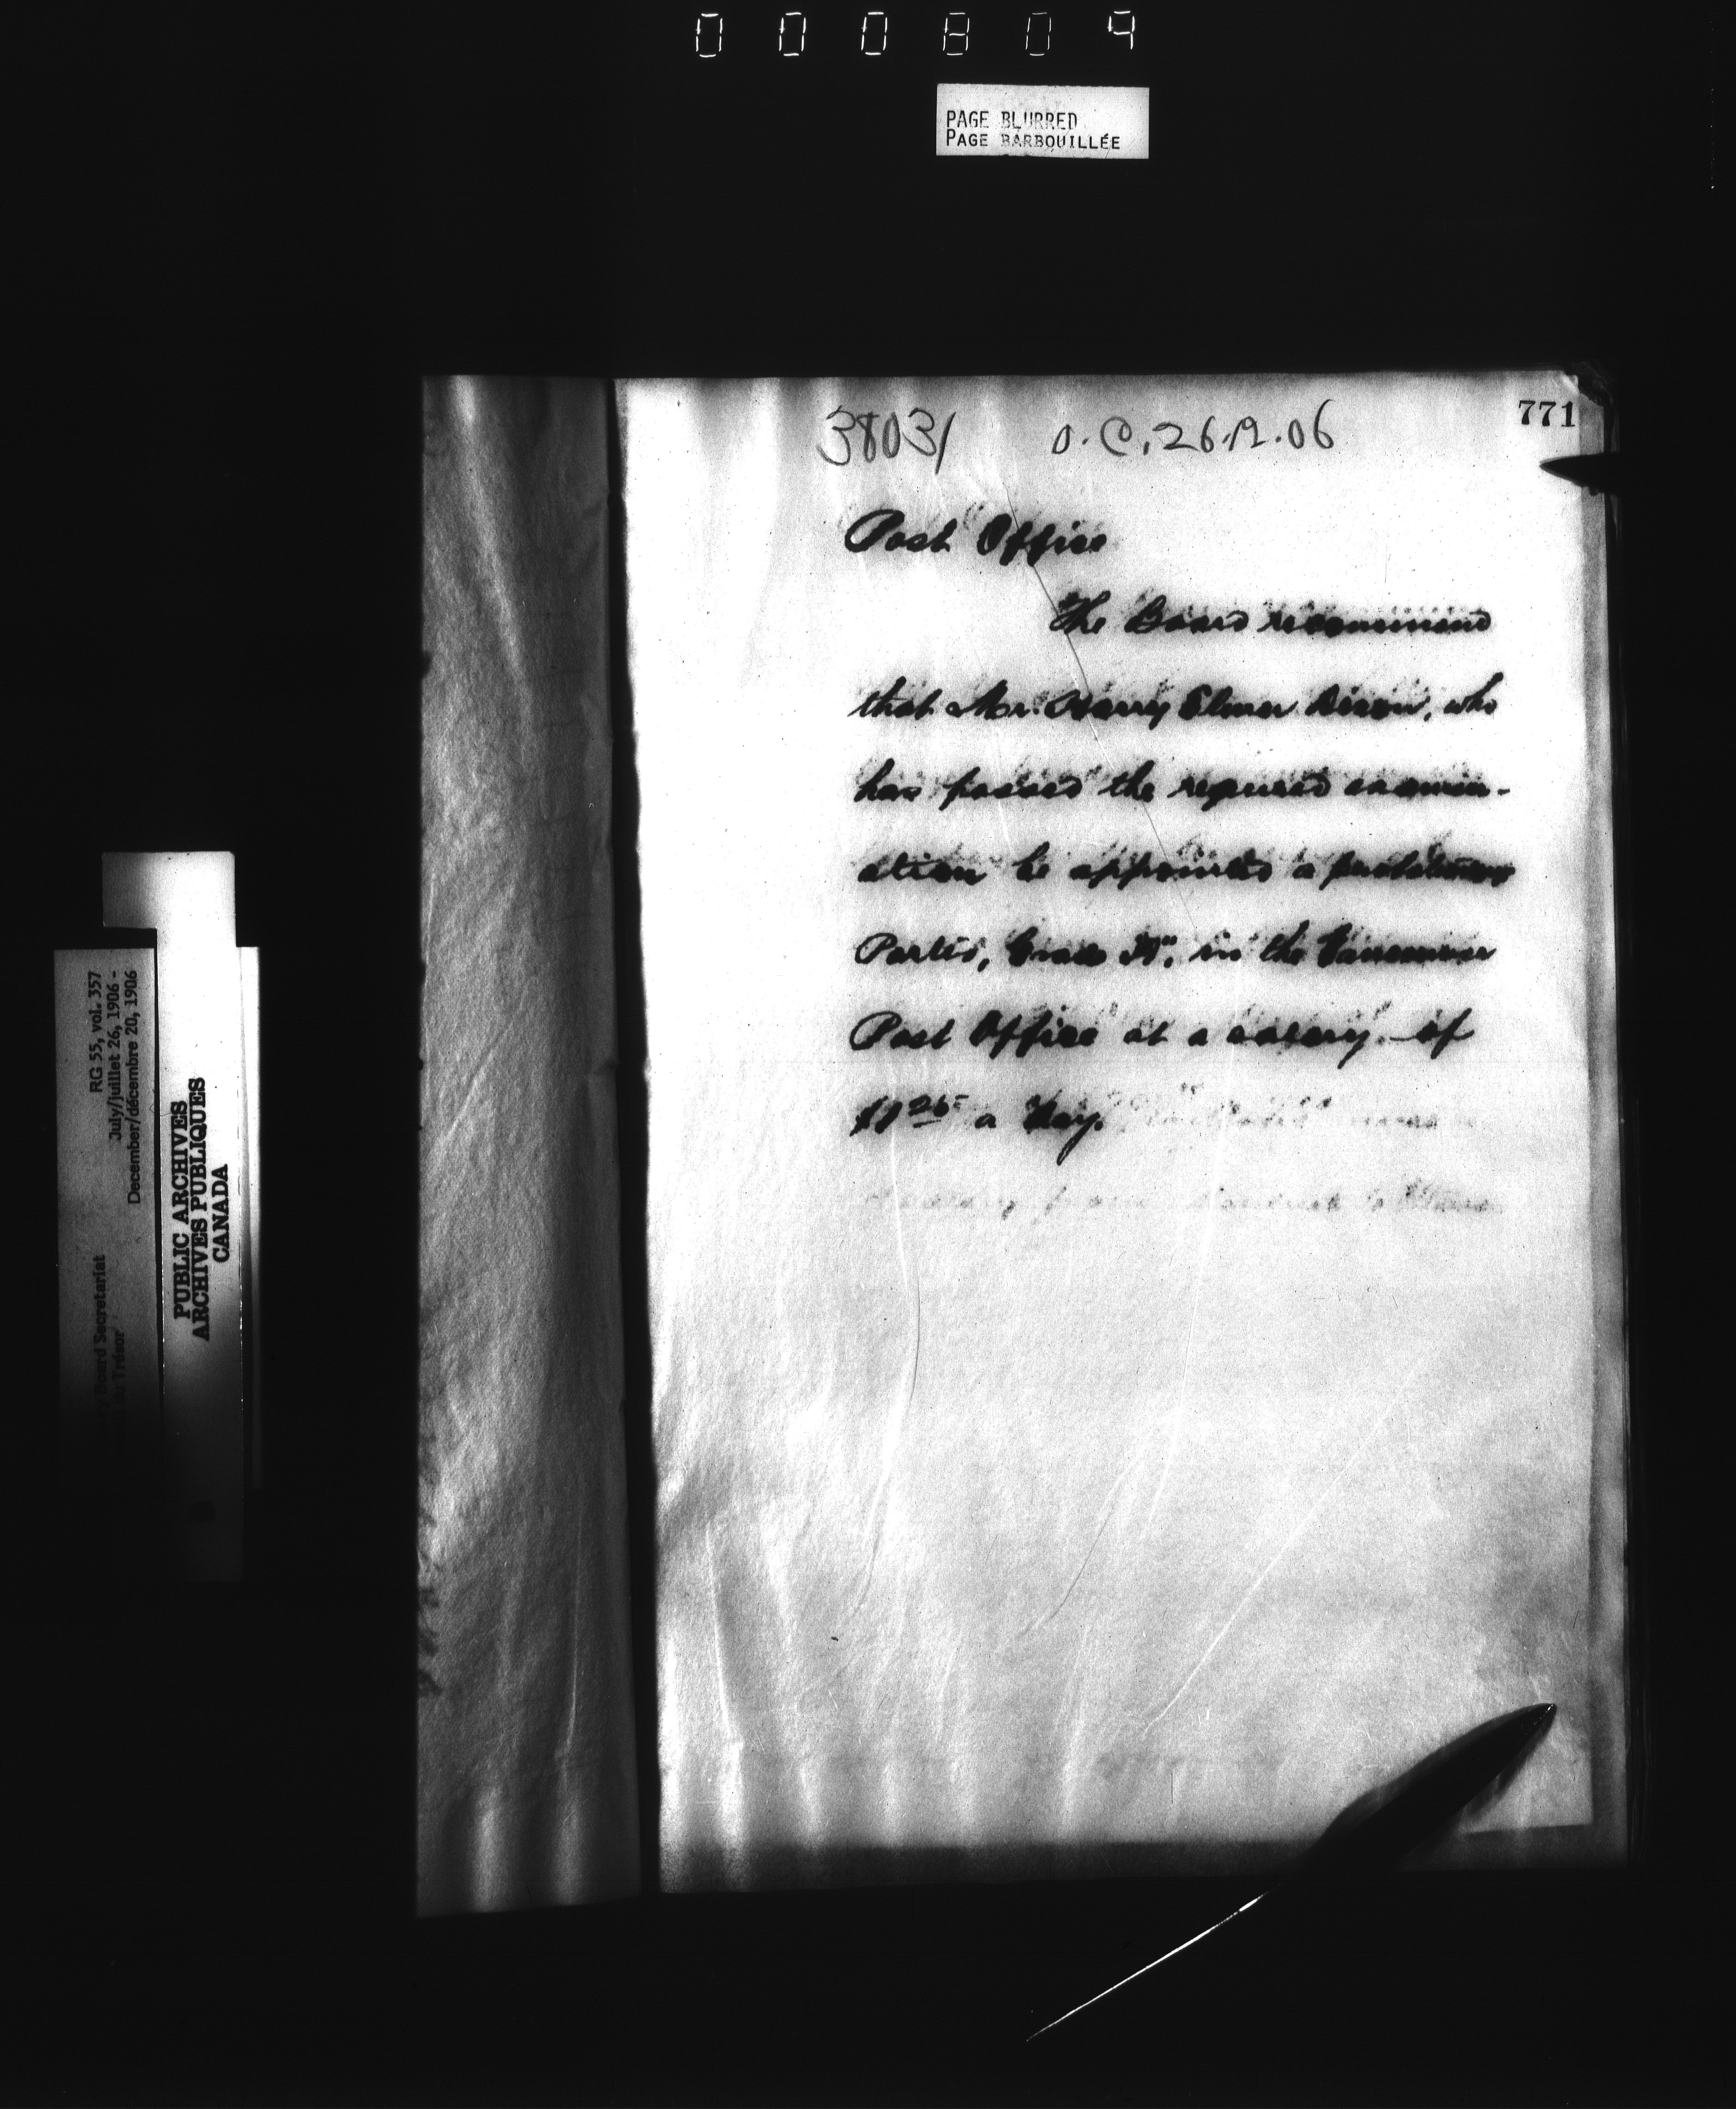 000804
PAGE BLURRED
PAGE BARBOUILLÉE
771
38031 O.C. 26.12.06
Post Office
The Board recommend
that Mr. Harry Elmer Dixon, who
has passed the required examin-
ation be appointed a probationary
Porter, Grade "A", in the Vancouver
Post Office at a salary of
$1 25 a day.
RG 55, vol. 357
July/juillet 26, 1906 -
December/décembre 20, 1906
Board Secretariat
du Trésor
PUBLIC ARCHIVES
ARCHIVES PUBLIQUES
CANADA